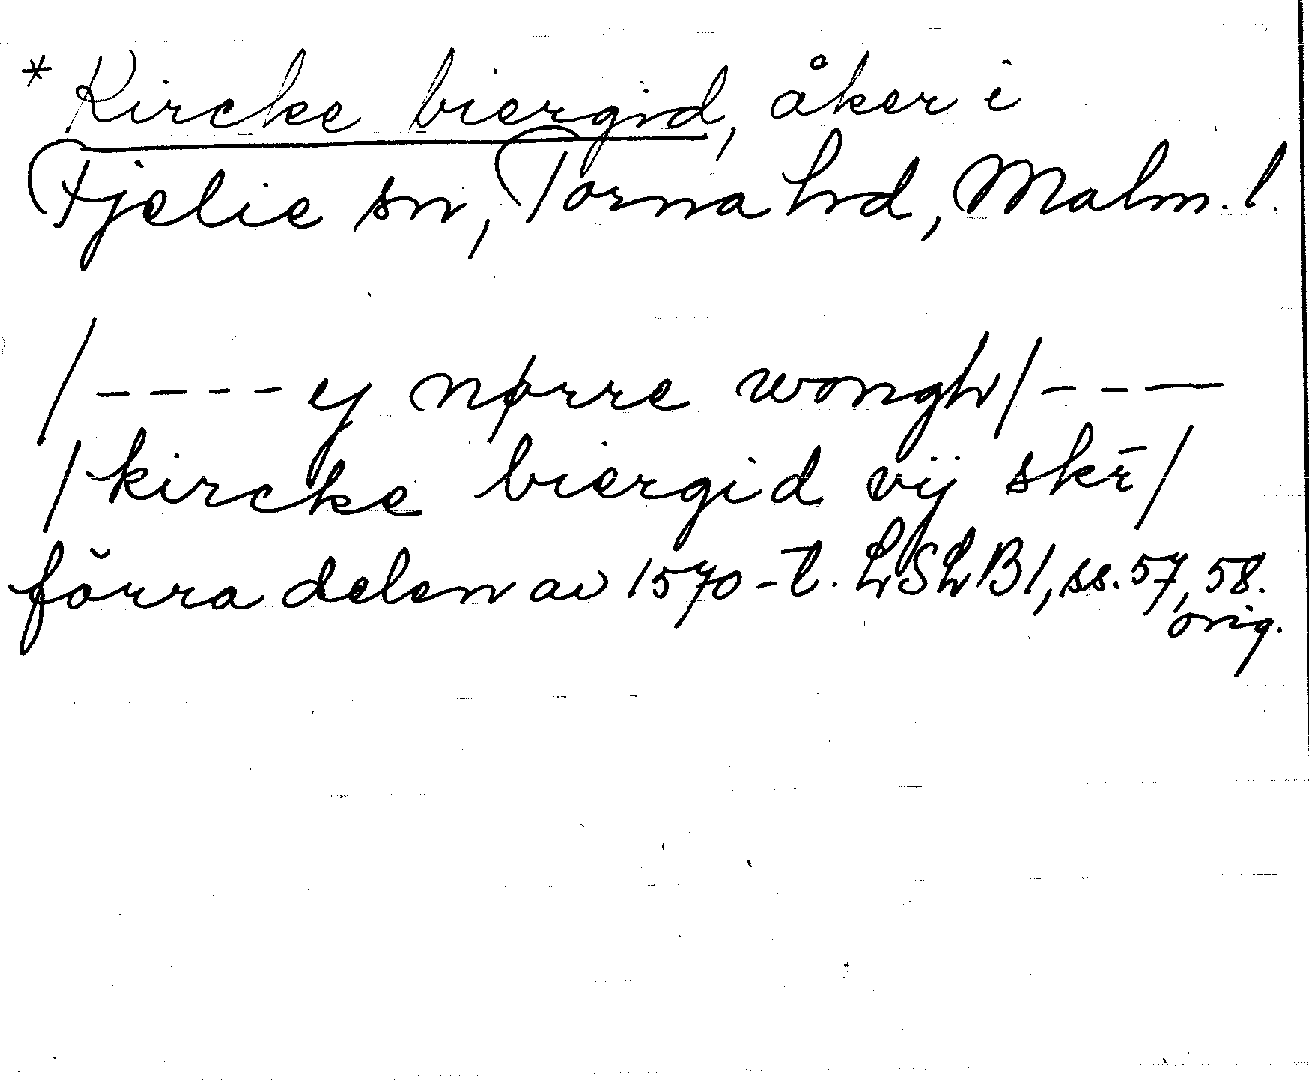 * Kircke biergid, åker i
Fjelie sn, Torna hd, Malm. l.
/----ej nørre wongh/---
/kircke biergid vij skr̄/
förra delen av 1570-t. LSLB1, ss. 57, 58.
orig.